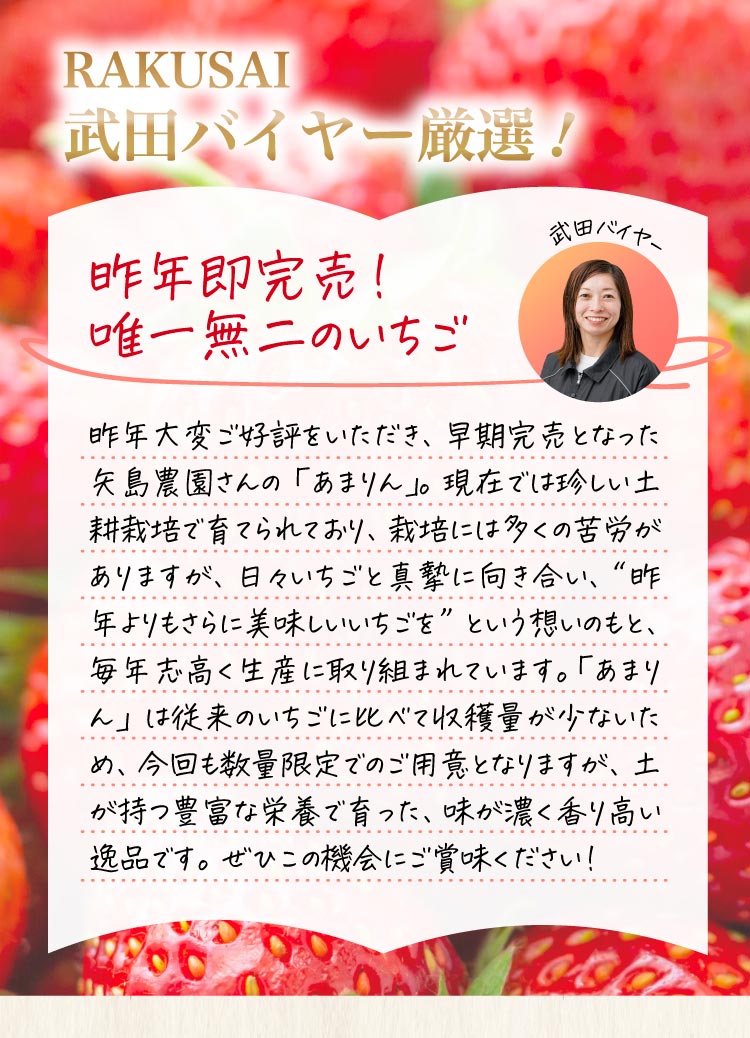 RAKUSAI
武田バイヤー厳選！
武田バイヤー
昨年即完売！
唯一無二のいちご
昨年大変ご好評をいただき、早期完売となった
矢島農園さんの「あまりん」。現在では珍しい土
耕栽培で育てられており、栽培には多くの苦労が
ありますが、日々いちごと真摯に向き合い、“昨
年よりもさらに美味しいいちごを”という想いのもと、
毎年志高く生産に取り組まれています。「あまり
ん」は従来のいちごに比べて収穫量が少ないた
め、今回も数量限定でのご用意となりますが、土
が持つ豊富な栄養で育った、味が濃く香り高い
逸品です。ぜひこの機会にご賞味ください！